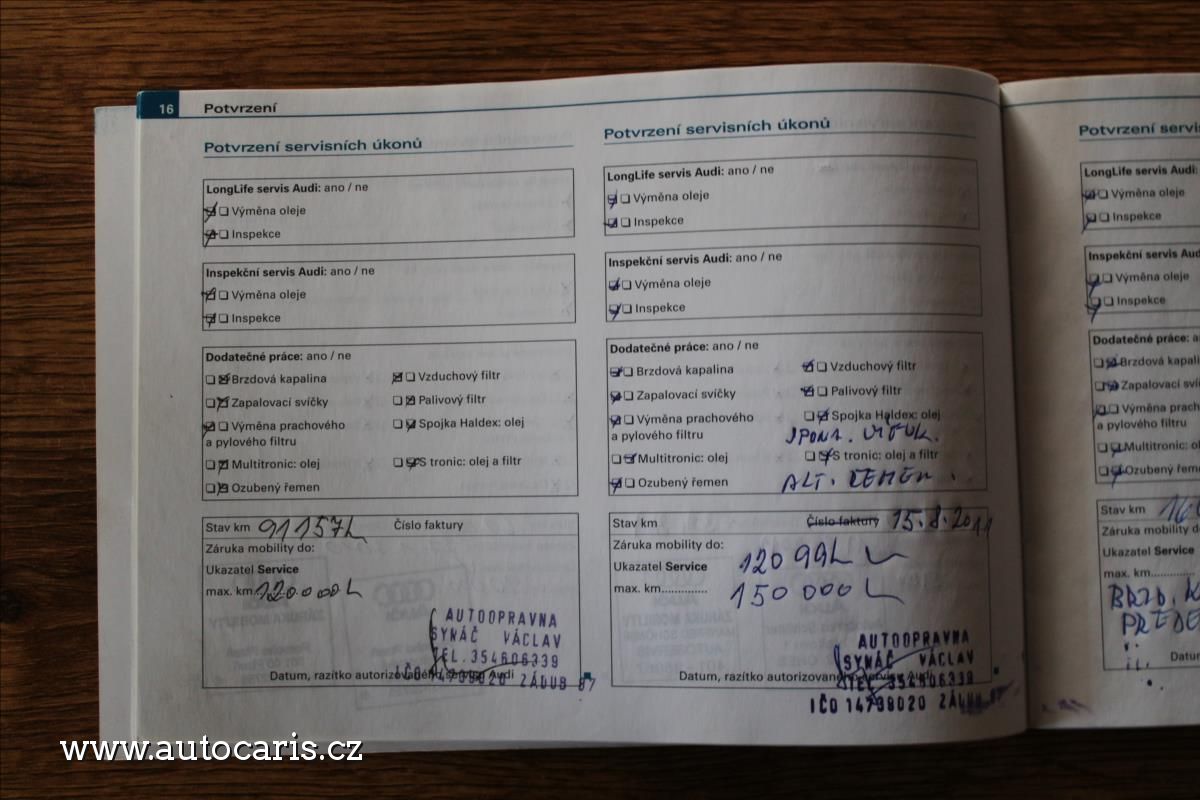 16 Potvrzení
Potvrzení servisních úkonů
LongLife servis Audi: ano / ne
Výměna oleje
Inspekce
Inspekční servis Audi: ano / ne
Výměna oleje
Inspekce
Dodatečné práce: ano / ne
Brzdová kapalina Vzduchový filtr
Zapalovací svíčky Palivový filtr
Výměna prachového Spojka Haldex: olej
a pylového filtru
Multitronic: olej S tronic: olej a filtr
Ozubený řemen
Stav km 91157 Číslo faktury
Záruka mobility do:
Ukazatel Service
max. km 120000
AUTOOPRAVNA
SYNÁČ VÁCLAV
TEL. 354606339
Datum, razítko autorizovaného servisu Audi
IČO 14738020 ZÁDUB 87
Potvrzení servisních úkonů
LongLife servis Audi: ano / ne
Výměna oleje
Inspekce
Inspekční servis Audi: ano / ne
Výměna oleje
Inspekce
Dodatečné práce: ano / ne
Brzdová kapalina Vzduchový filtr
Zapalovací svíčky Palivový filtr
Výměna prachového Spojka Haldex: olej
a pylového filtru
Multitronic: olej S tronic: olej a filtr
Ozubený řemen ALT. ŘEMEN
Stav km Číslo faktury 15.8.2011
Záruka mobility do:
Ukazatel Service
max. km.............. 150 000
AUTOOPRAVNA
SYNÁČ VÁCLAV
TEL 354606339
Datum, razítko autorizovaného servisu Audi
IČO 14738020 ZÁDUB 87
Potvrzení servi
LongLife servis Audi:
Výměna oleje
Inspekce
Inspekční servis Aud
Výměna oleje
Inspekce
Dodatečné práce: a
Brzdová kapali
Zapalovací sví
Výměna pracho
a pylového filtru
Multitronic: ol
Ozubený řeme
Stav km
Záruka mobility do:
Ukazatel Service
max. km............
BRZD. K
PŘEDE
Datu
www.autocaris.cz